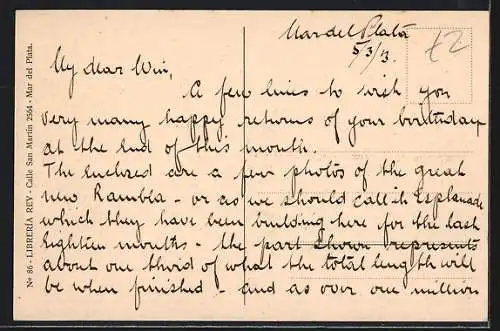 Mar del Plata
5/3/13.
£2
My dear Win,
A few lines to wish you
very many happy returns of your birthday
at the end of this month.
The enclosed are a few photos of the great
new Rambla - or as we should call it Esplanade
which they have been building here for the last
eighteen months - the part shown represents
about one third of what the total length will
be when finished - and as over one million
Nº 86 - LIBRERÍA REY - Calle San Martín 2564 - Mar del Plata.